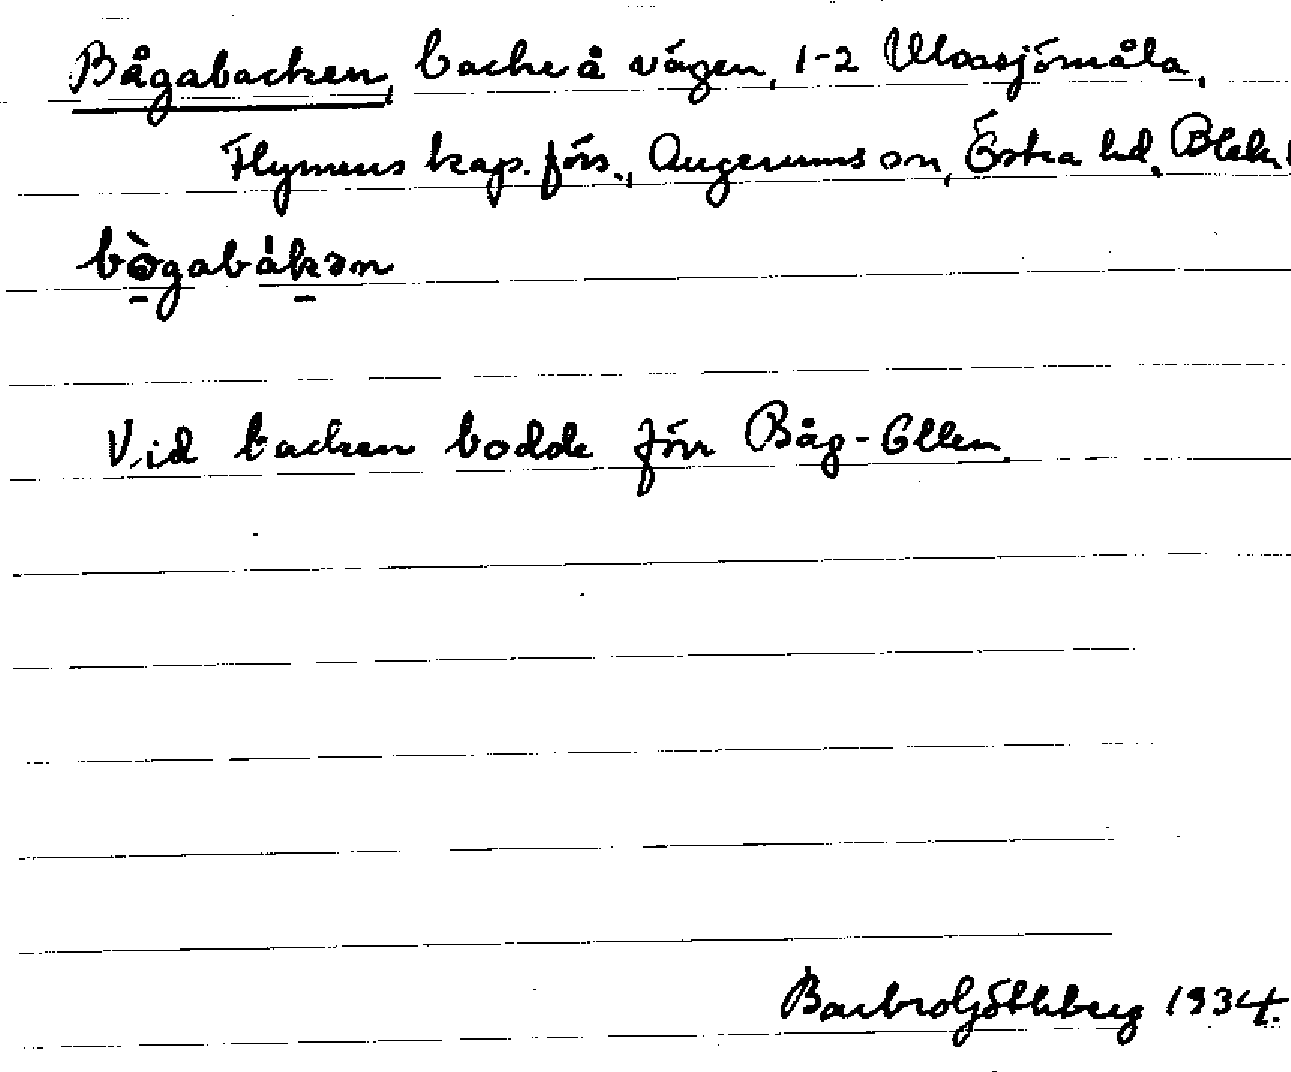 Bågabacken, backe å vägen, 1-2 Ulassjömåla,
Flymens kap. förs., Augerums sn, Östra hd. Blek.
bògabákən
Vid backen bodde förr Båg-Ellen.
Barbro Göthberg 1934.